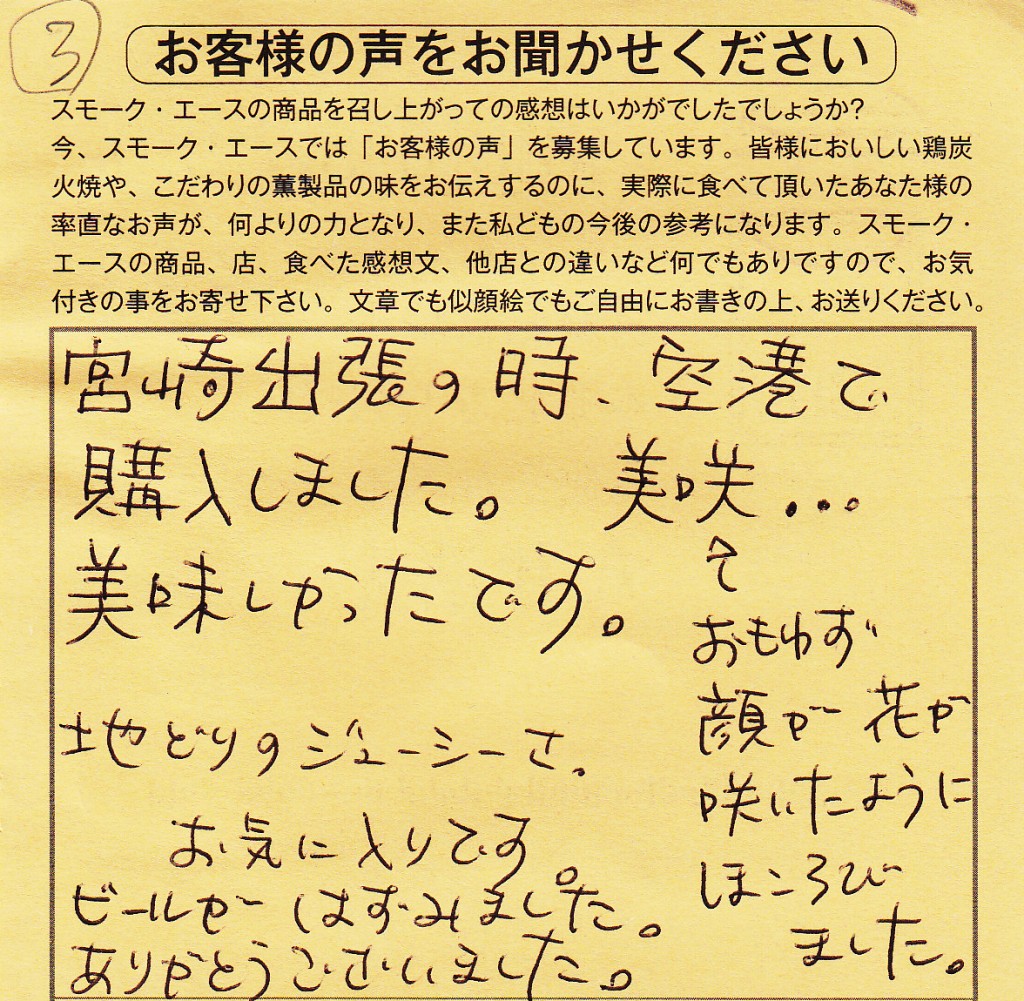 3
お客様の声をお聞かせください
スモーク・エースの商品を召し上がっての感想はいかがでしたでしょうか?
今、スモーク・エースでは「お客様の声」を募集しています。皆様においしい鶏炭
火焼や、こだわりの薫製品の味をお伝えするのに、実際に食べて頂いたあなた様の
率直なお声が、何よりの力となり、また私どもの今後の参考になります。スモーク・
エースの商品、店、食べた感想文、他店との違いなど何でもありですので、お気
付きの事をお寄せ下さい。文章でも似顔絵でもご自由にお書きの上、お送りください。
宮崎出張の時、空港で
購入しました。 美咲...
美味しかったです。
おもわず
顔が花が
咲いたように
ほころび
ました。
地どりのジューシーさ、
お気に入りです。
ビールがはずみました。
ありがとうございました。